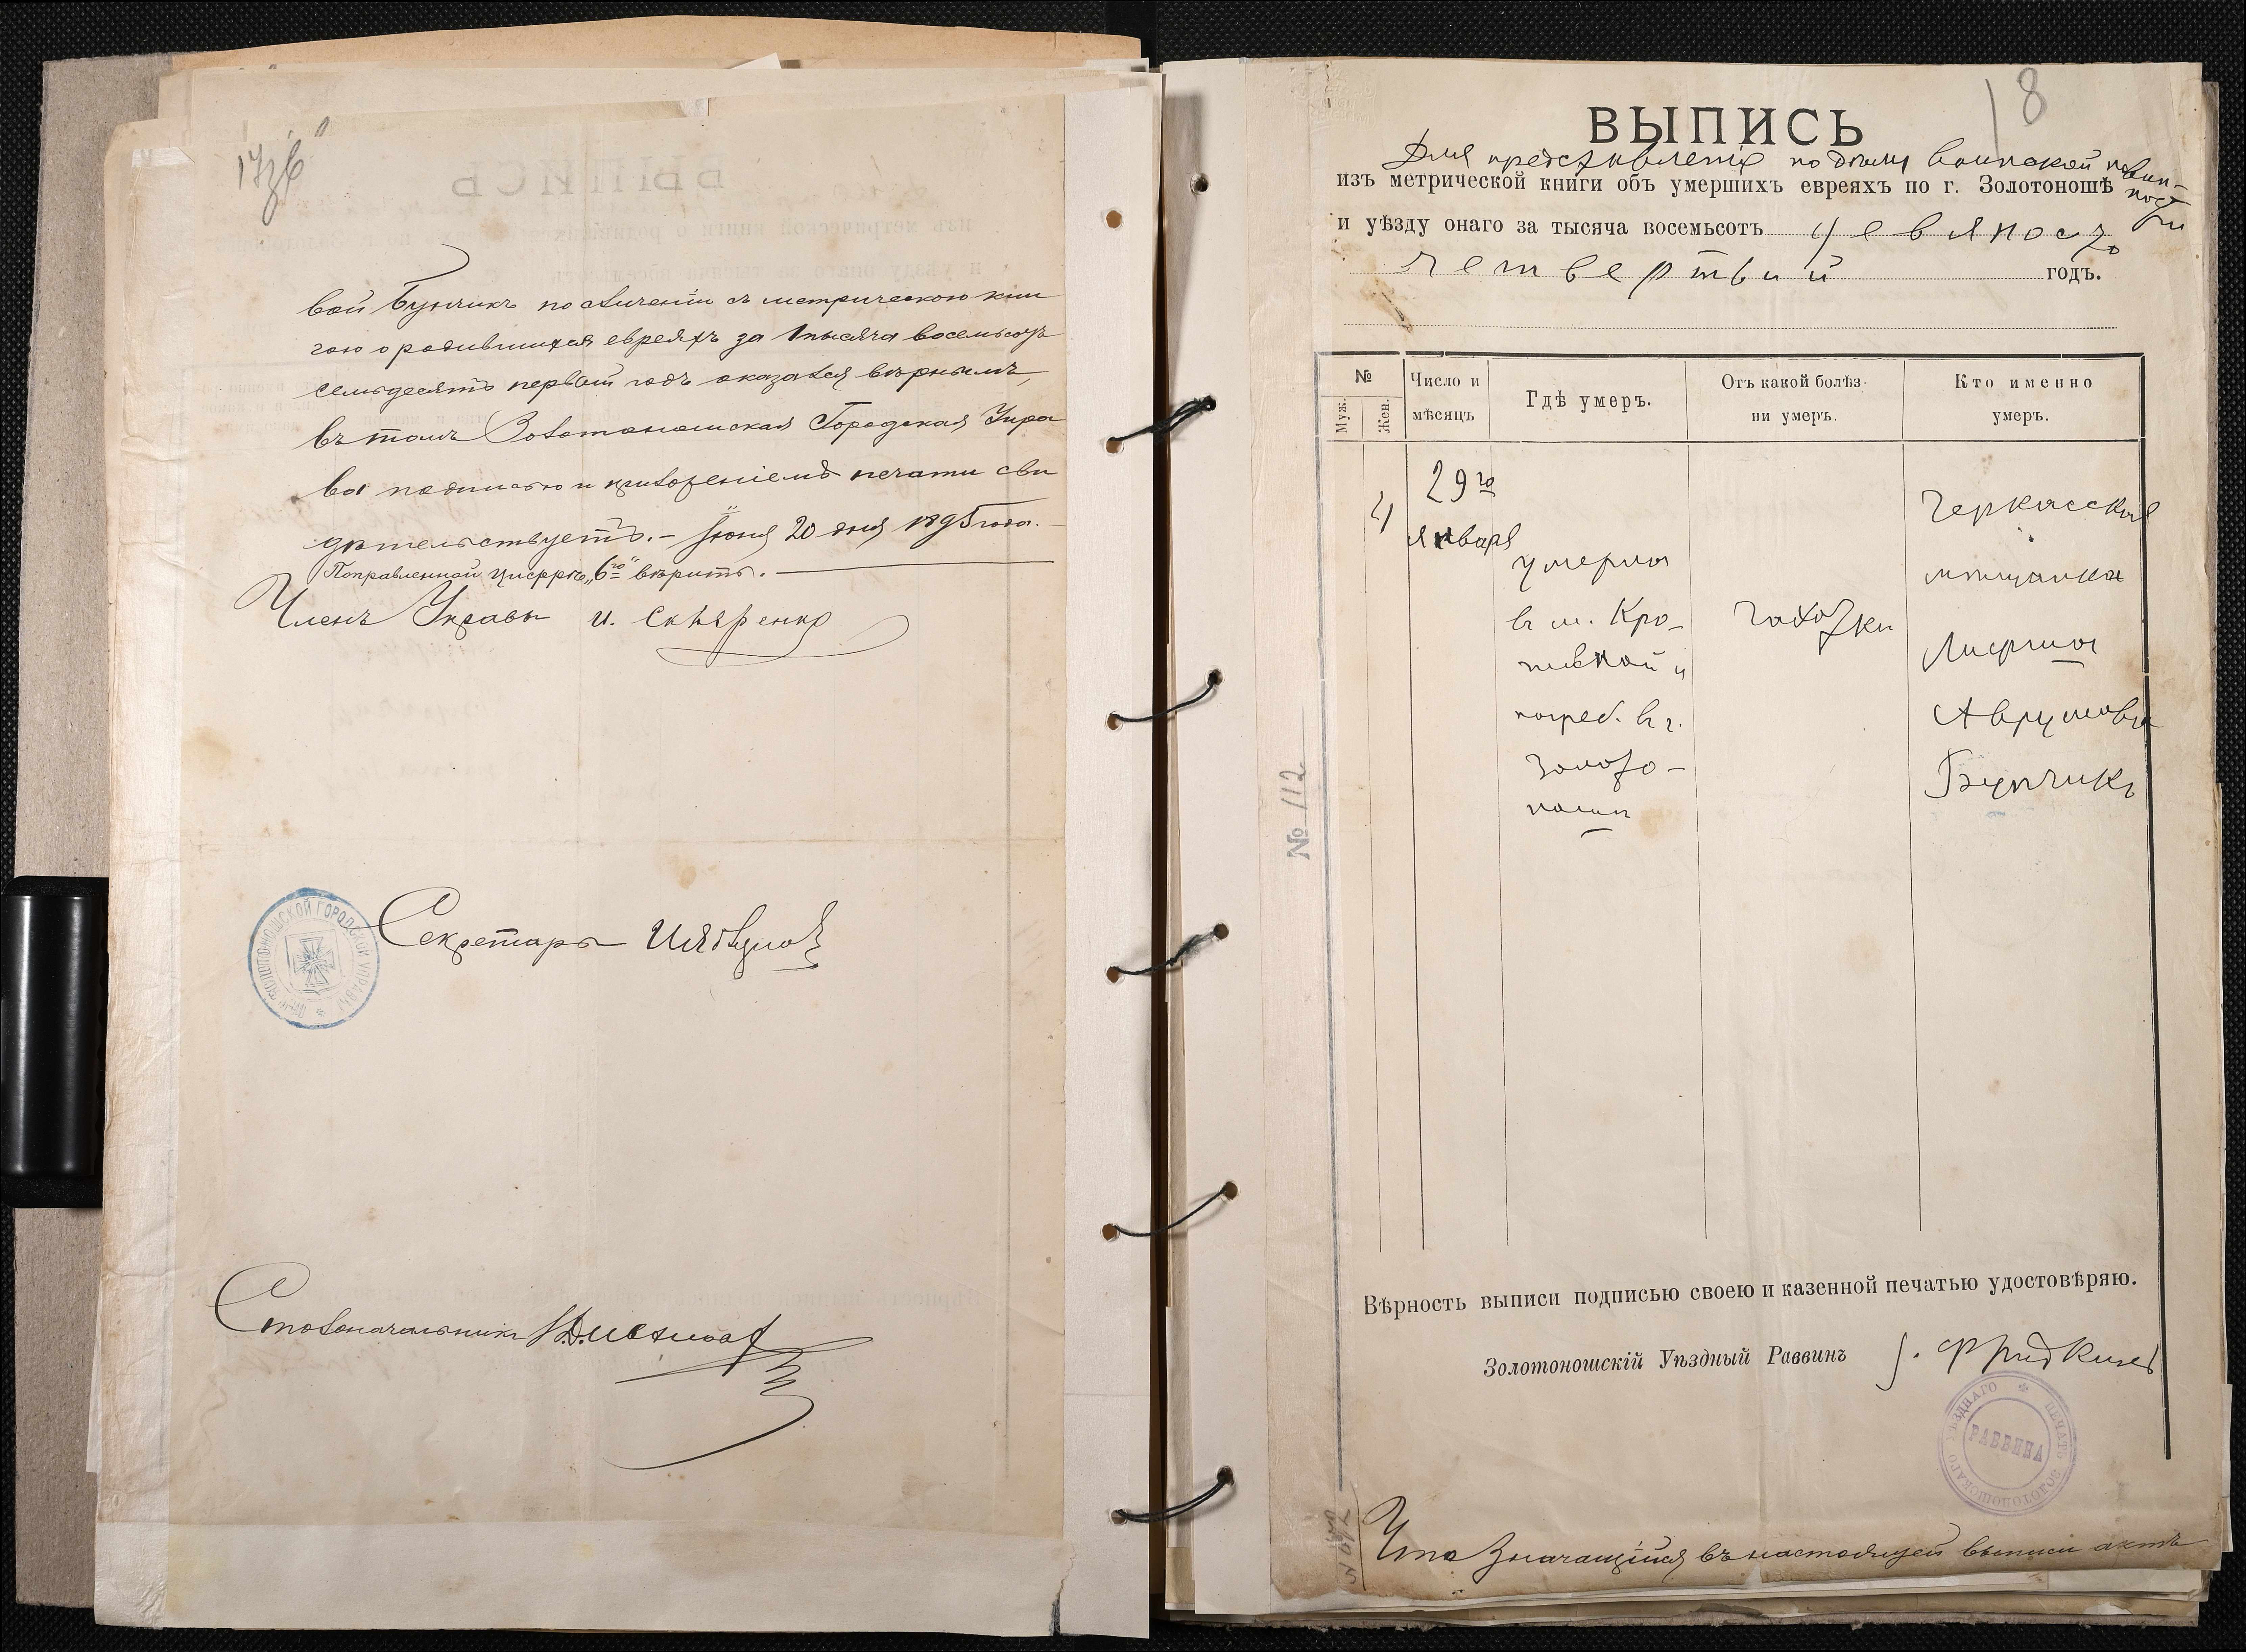 17 об
вой Бунчикъ по сличеніи съ метрическою кни
гою о родившихся евреяхъ за тысяча восемьсотъ
семьдесятъ первый годъ оказался вѣрнымъ,
въ томъ Золотоношская Городская Упра
ва подписью и приложеніемъ печати сви
дѣтельствуетъ. – Іюня 20 дня 1895 года. –
Поправленной цифрѣ „6го“ вѣрить. –
Членъ Управы И. Скляренко
ЗОЛОТОНОШСКОЙ ГОРОДСКОЙ УПРАВЫ
Секретарь
Столоначальникъ
18
ВЫПИСЬ
Для представленія по дѣламъ воинской повин-
ности
изъ метрической книги объ умершихъ евреяхъ по г. Золотоношѣ
и уѣзду онаго за тысяча восемьсотъ девяносто
четвертый годъ.
№
Муж.
Жен.
Число и
мѣсяцъ
Гдѣ умеръ.
Отъ какой болѣз-
ни умеръ.
Кто именно
умеръ.
29го
января
умерла
въ м. Кро-
пивной и
погреб. въ г.
Золото-
ноши
чахотки
Черкасская
мѣщанка
Аврумова
Бунчикъ
№ 112
Вѣрность выписи подписью своею и казенной печатью удостовѣряю.
Золотоношскій Уѣздный Раввинъ
ПЕЧАТЬ ЗОЛОТОНОШСКАГО УѢЗДНАГО
РАВВИНА
Что значащійся въ настоящей выписи актъ